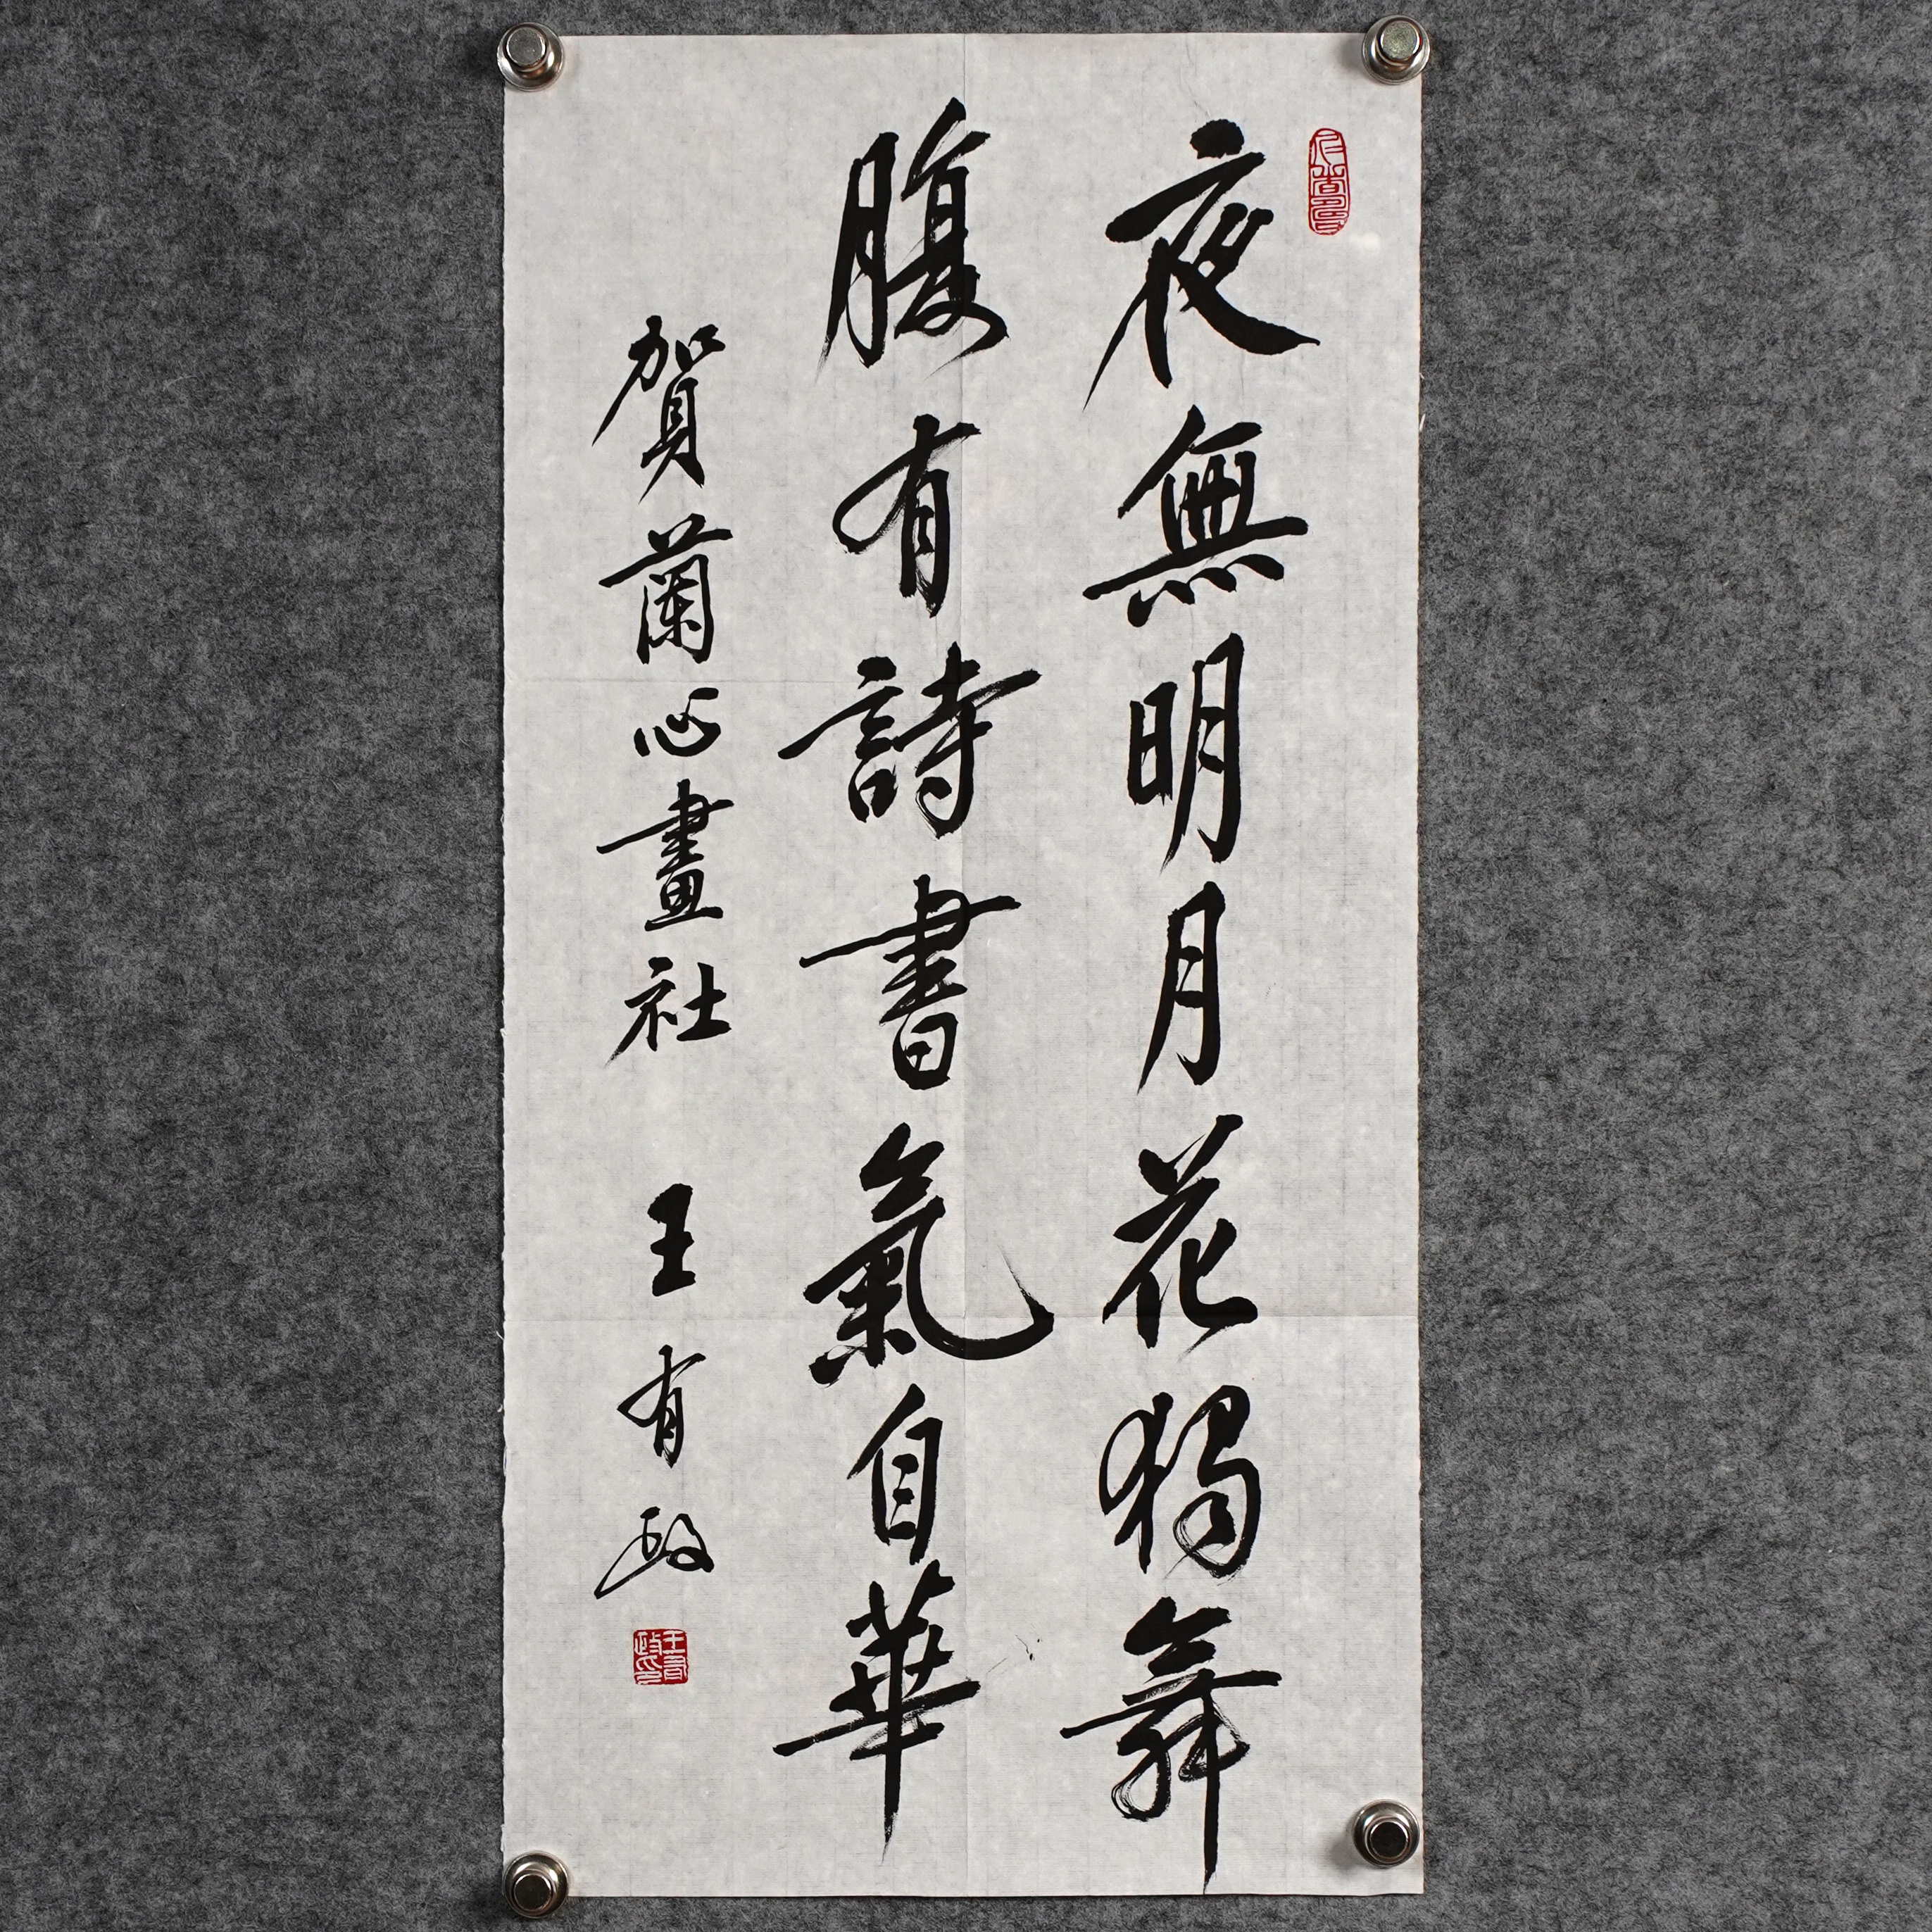 夜無明月花獨舞
腹有詩書氣自華
賀蘭心畫社 王有政
王有政印